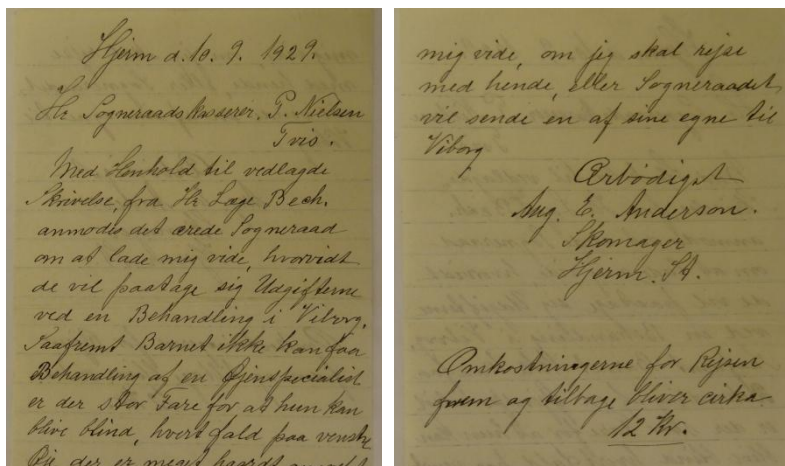 Hjerm d. 10. 9. 1929.
Hr. Sogneraadskasserer, P. Nielsen
Tvis.
Med Henhold til vedlagde
Skrivelse, fra Hr. Læge Bech.
anmodes det ærede Sogneraad
om at lade mig vide, hvorvidt
de vil paatage sig Udgifterne
ved en Behandling i Viborg.
Saafremt Barnet ikke kan faa
Behandling af en Øjenspecialist
er der stor Fare for at hun kan
blive blind, hvert fald paa venstre
Øje der er meget haardt
mig vide, om jeg skal rejse
med hende, eller Sogneraadet
vil sende en af sine egne til
Viborg
Ærbødigst
Aug. E. Anderson.
Skomager
Hjerm. St.
Omkostningerne for Rejsen
frem og tilbage bliver cirka
12 Kr.